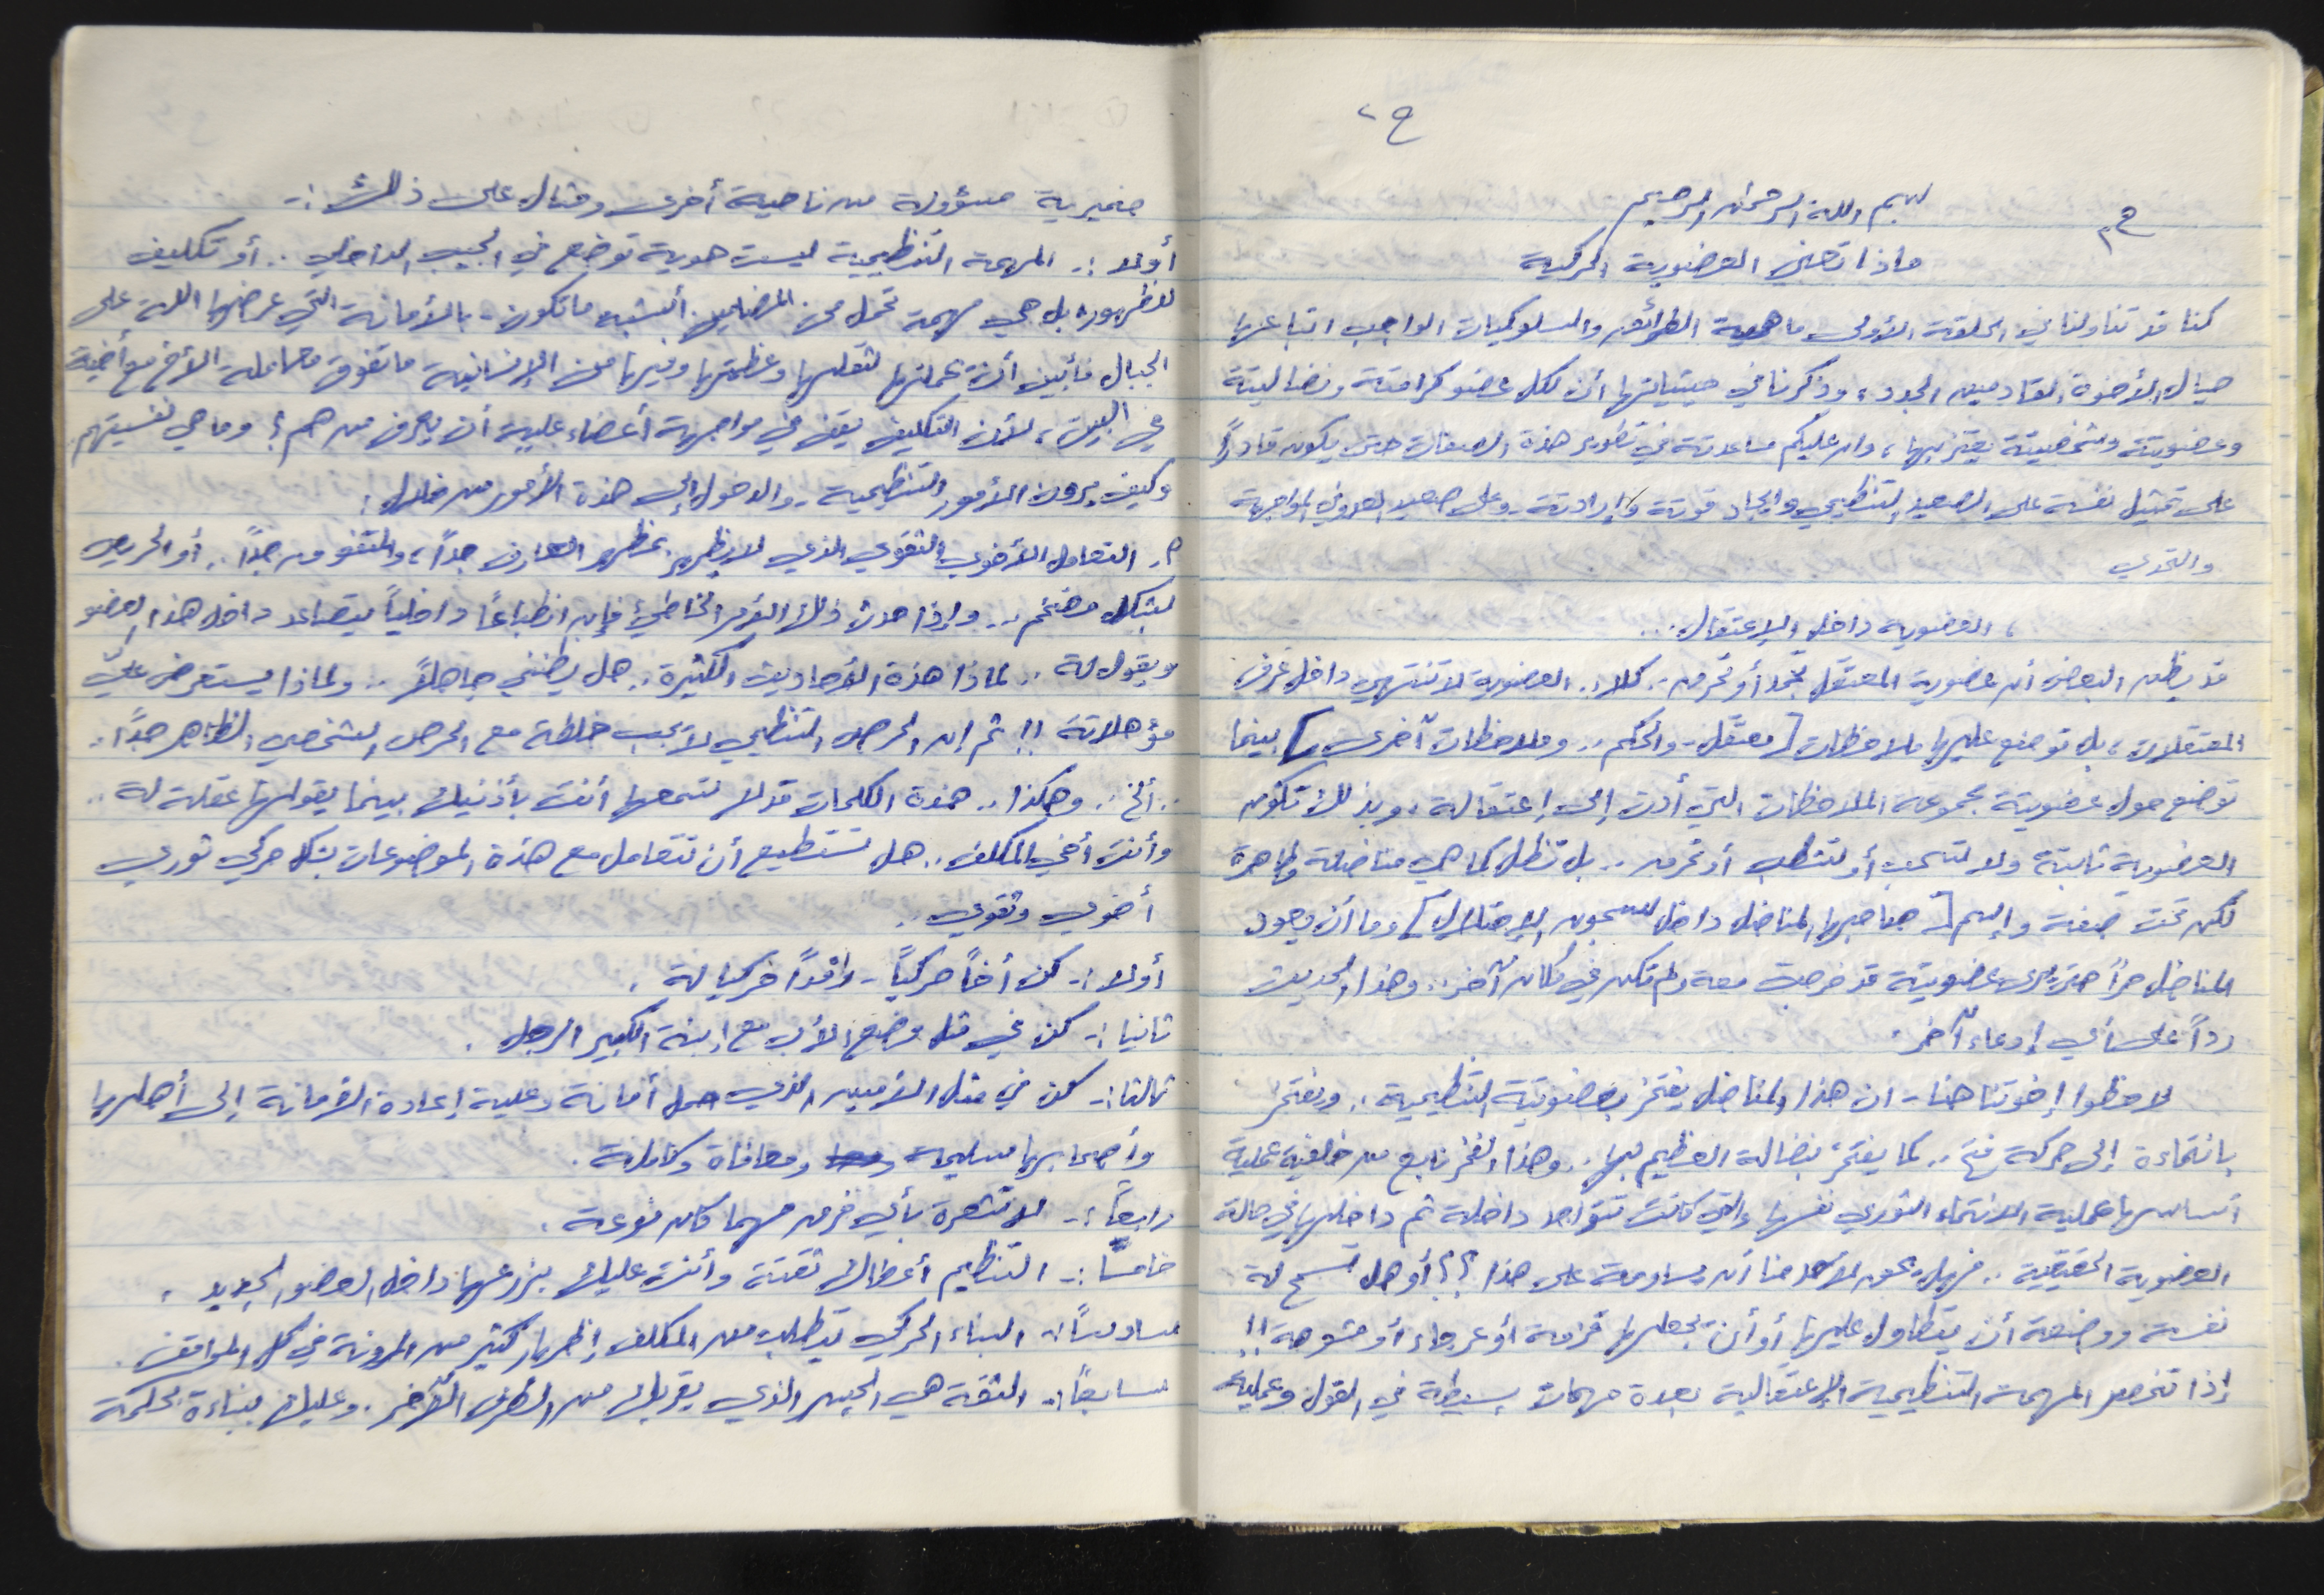 ح٢
بسم الله الرحمن الرحيم
ح٢
ماذا تعني العضوية الحركية
كنا قد تناولنا في الحلقة الأولى ماهية الطرائق والسلوكيات الواجب اتباعها
حيال الأخوة القادمين الجدد، وذكرنا في حيثياتها أن لكل عضو كرامتة ونضاليتة
وعضويتة وشخصيتة يعتز بها، وان عليكم مساعدتة في تطوير هذة الصفات حتى يكون قادراً
على تمثيل نفسة على الصعيد التنظيمي وايجاد قوتة وإرادتة. وعلى صعيد العدو في المواجهة
والتحدي
، العضوية داخل الإعتقال...
قد يظن البعض أن عضوية المعتقل تجمد أو تحرم.. كلا.. العضوية لا تنتهي داخل غرف
المعتقلات، بل توضع عليها ملاحظات [معتقل - والحكم.. وملاحظات آخرى] بينما
توضع حول عضويتة مجموعه الملاحظات التي أدت إلى إعتقالة، وبذلك تكون
العضوية ثابتة ولا تسحب أو تشطب أو تحرم.. بل تظل كما هي مناضلة وطاهرة
لكن تحت صفة وإسم [صاحبها المناضل داخل سجون الإحتلال] وما أن يعود
المناضل حراً حتى يرى عضويتة قد خرجت معة ولم تكن في مكان آخر.. وهذا الحديث
رداً على أي إدعاء آخر.
لاحظوا إخوتنا هنا - ان هذا المناضل يفتخر بعضويتة التنظيمية.. ويفتخر
بانتماءة إلى حركة فتح.. كما يفتخر بنضالة العظيم بها.. وهذا الفخر نابع من خلفية عملية
أساسها عملية الانتماء الثوري نفسها والتي كانت تتواجد داخلة ثم داخلها في حالة
العضوية الحقيقية.. فهل يحق لأحد منا أن يساومة على هذا؟؟ أو هل تسمح لة
نفسة ووضعة أن يتطاول عليها أو أن يجعلها قزمة أو عرجاء أو مشوهة!!
إذا تنحصر المهمة التنظيمية الإعتقالية بعدة مهمات بسيطة في القول وعملية
ضميرية مسؤولة من ناحية أخرى ومثال على ذلك:-
أولا:- المهمة التنظيمية ليست هوية توضع في الجيب الداخلي.. أو تكليف
للظهور، بل هي مهمة تحمل من المضامين أشبه ما تكون - بالأمانة التي عرضها اللة على
الجبال فأبين أن يحملنها لثقلها وعظمتها وفيها من الإنسانية ما تفوق معاملة الأخ مع أخية
في البيت، لأن التكليف يقف في مواجهة أعضاء علية أن يعرف من هم؟ وما هي نفسيتهم
وكيف يرون الأمور التنظيمية - والدخول إلى هذة الأمور من خلال:
م. التعامل الأخوي التقوي الذي لا يظهر بمظهر العارف جداً، والمتفوق جداً.. أو الحريص
بشكل مضخم.. وإذا حدث ذلك الأمر الخاطئ فإن انطباعاً داخلياً يتصاعد داخل هذا العضو
ويقول لة.. لماذا هذة الأحاديث الكثيرة.. هل يظنني جاهلاً.. ولماذا يستعرض عليّ
مؤهلاتة!! ثم إن الحرص التنظيمي لا يجب خلطة مع الحرص الشخصي الظاهر جداً..
.. ألخ.. وهكذا.. هذة الكلمات قد لا تسمعها أنت بأذنيك بينما يقولها عقلة لة..
وأنت أخي المكلف.. هل تستطيع أن تتعامل مع هذة الموضوعات بشكل حركي ثوري
أخوي وتقوي..
أولا:- كن أخاً حركياً - رافداً حركيا لة.
ثانيا:- كن في مثل وضع الأب مع إبنة الكبير الرجل.
ثالثا:- كن في مثل الأمين الذي حمل أمانة وعلية إعادة الأمانة إلى أهلها
وأصحابها سليمة ومعافاة وكاملة.
رابعاً:- لا تشعرة بأي فرق مهما كان نوعة.
خامساً:- التنظيم أعطاك ثقتة وأنت عليك بزرعها داخل العضو الجديد.
سادساً:- البناء الحركي يتطلب من المكلف إظهار كثير من المرونة في كل المواقف.
سابعاً:- الثقة هي الجسر الذي يقربك من الطرف الآخر. وعليك بناءة بحكمة